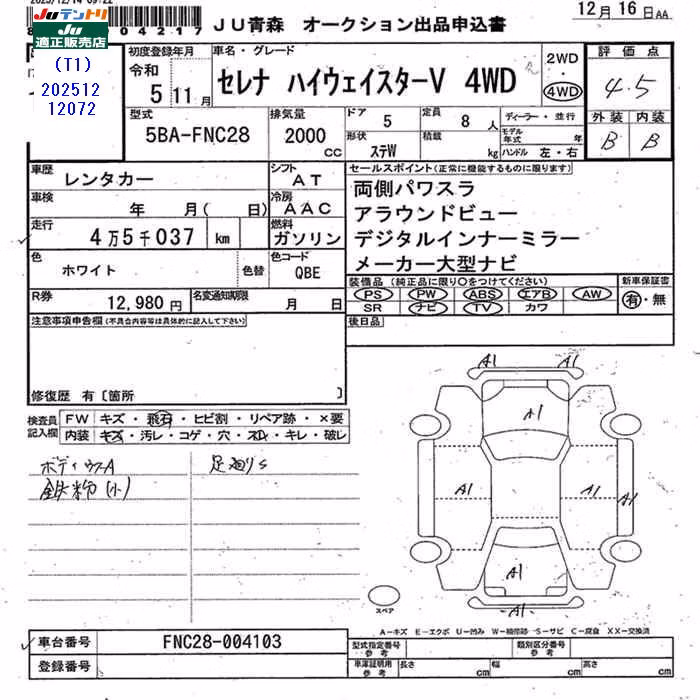 2025/12/14 09:22
JU青森 オークション出品申込書
12月16日AA
Juテントリ
Ju適正販売店
(T1)
202512
12072
初度登録年月
令和
5 11月
車名・グレード
セレナ ハイウェイスターV 4WD
2WD
・
4WD
評価点
4.5
外装 内装
B B
型式
5BA-FNC28
排気量
2000
CC
ドア 5
定員 8 人
形状 ステW
積載 kg
ディーラー・並行
モデル年式 年
ハンドル 左・右
車歴 レンタカー
シフト AT
車検 年 月( 日)
冷房 AAC
走行 4万5千037 km
燃料 ガソリン
色 ホワイト 色替
色コード QBE
R券 12,980円
名変通知期限 月 日
セールスポイント(正常に機能するものに限ります)
両側パワスラ
アラウンドビュー
デジタルインナーミラー
メーカー大型ナビ
装備品(純正品に限り○をつけてください)
PS PW ABS エアB AW
SR ナビ TV カワ
新車保証書
有・無
後日品
注意事項申告欄(不具合内容等は具体的に記入して下さい)
修復歴 有〔箇所 〕
検査員記入欄
FW キズ・飛石・ヒビ割・リペア跡・×要
内装 キズ・汚レ・コゲ・穴・スレ・キレ・破レ
ボディウスA
鉄粉(小)
足廻りS
A1 A1
A1
A1 A1 A1
A1
A1
スペア
A-キズ E-エクボ U-凹み W-補修跡 S-サビ C-腐食 XX-交換済
車台番号 FNC28-004103
登録番号
型式指定番号参考
類別区分番号参考
車庫証明用参考 長さ cm 幅 cm 高さ cm